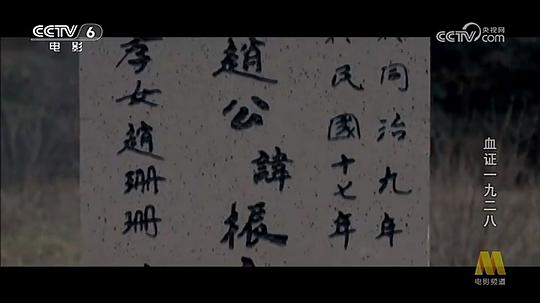 CCTV 6
电影
央视网
CCTV.com
同治九年
民國十七年
趙公諱振
孝女趙珊珊
血证一九二八
M
电影频道